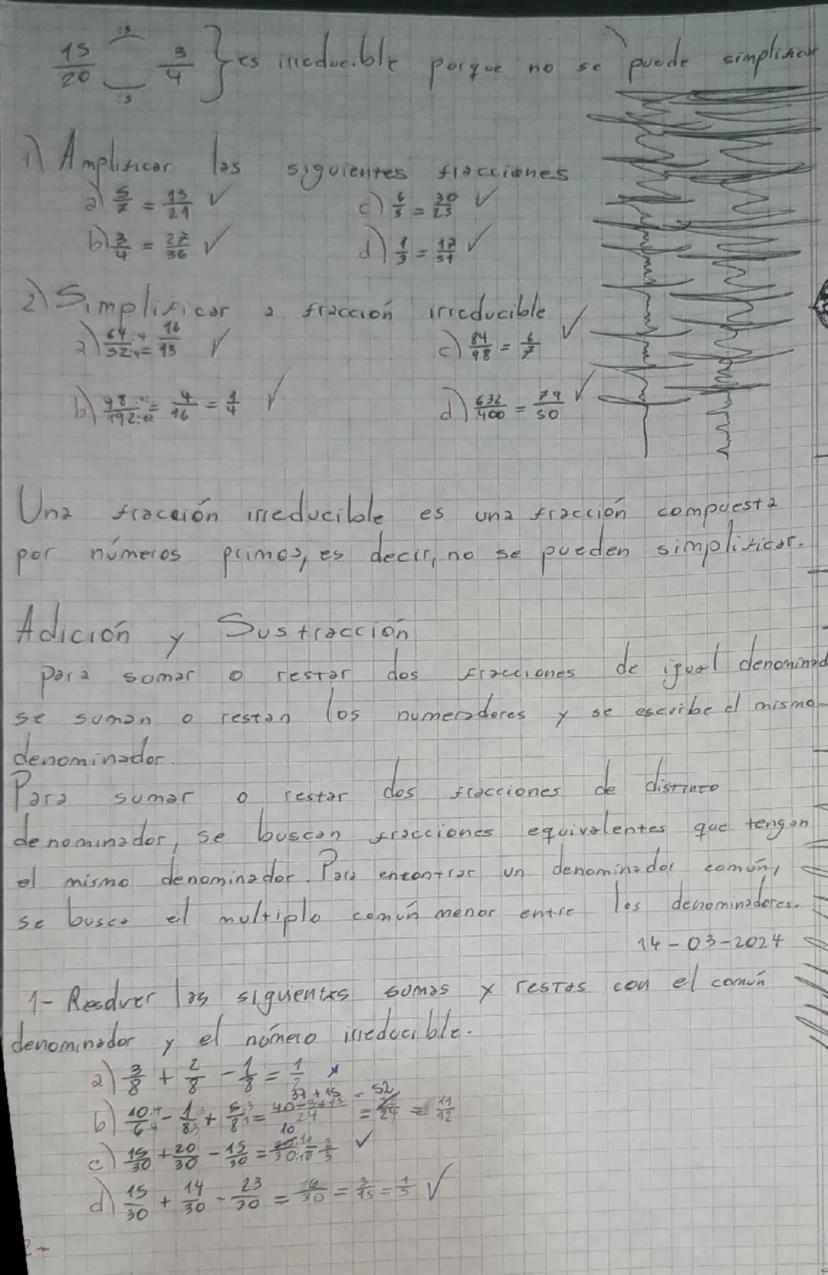 :5
15/20 3/4 } es irreducible porque no se puede simplificar
:5
1) Amplificar las siguientes fracciones
a) 5/7 = 15/21 ✓ c) 6/5 = 30/25 ✓
b) 3/4 = 27/36 ✓ d) 1/3 = 17/51 ✓
2) Simplificar a fracción irreducible
a) 64/52 :4 :4 = 16/13 ✓ c) 84/98 = 6/7 ✓
b) 48/192 :12 :12 = 4/16 = 1/4 ✓ d) 632/400 = 79/50 ✓
Una fracción irreducible es una fracción compuesta
por números primos, es decir, no se pueden simplificar.
Adición y Sustracción
Para sumar o restar dos fracciones de igual denominad
se suman o restan los numeradores y se escribe el mismo
denominador.
Para sumar o restar dos fracciones de distinto
denominador, se buscan fracciones equivalentes que tengan
el mismo denominador. Para encontrar un denominador común,
se busca el multiplo común menor entre los denominadores.
14-03-2024
1- Resolver las siguientes sumas y restas con el común
denominador y el número irreducible.
a) 3/8 + 2/8 - 1/8 = 1/2
b) 10/6 - 1/8 + 5/8 = 37+15 = 52 /24 = 11/12
c) 15/30 + 20/30 - 15/30 = = 2/3 ✓
d) 15/30 + 14/30 - 23/30 = /30 = 3/15 = 1/5 ✓
2-